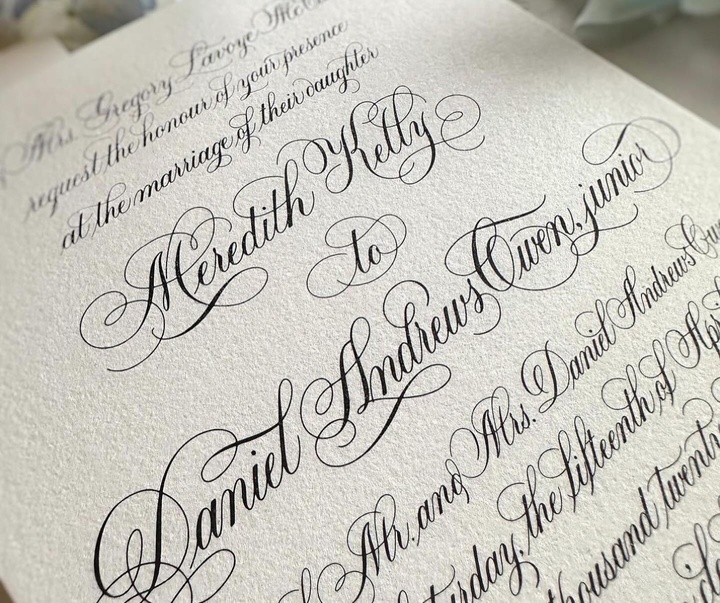 Mrs. Gregory Lavoye
request the honour of your presence
at the marriage of their daughter
Meredith Kelly
to
Daniel Andrews Owen, junior
Mr. and Mrs. Daniel Andrews
the fifteenth of
thousand twenty